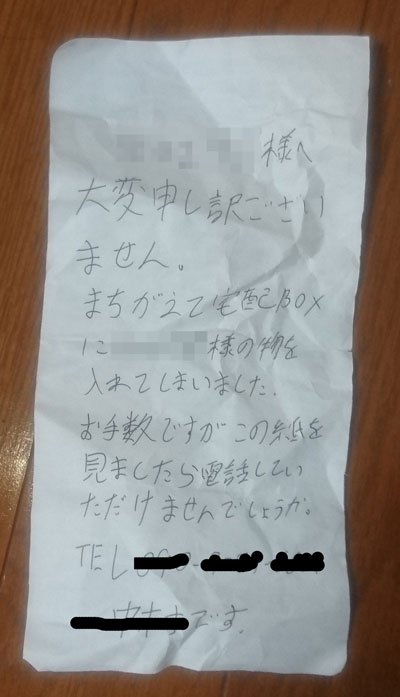 様へ
大変申し訳ござい
ません。
まちがえて宅配BOX
に 様の物を
入れてしまいました.
お手数ですがこの紙を
見ましたら電話してい
ただけませんでしょうか。
TEL
です.